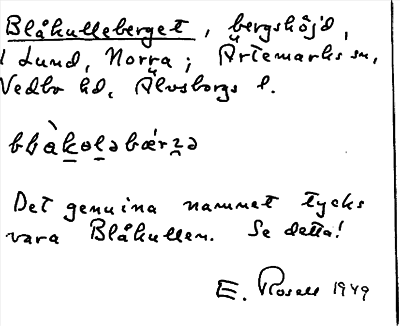 Blåkulleberget, bergshöjd,
i Lund, Norra; Ärtemarks sn,
Vedbo hd, Älvsborgs l.
blåkoləbærʒə
Det genuina namnet tycks
vara Blåkullen. Se detta!
E. Rosell 1949